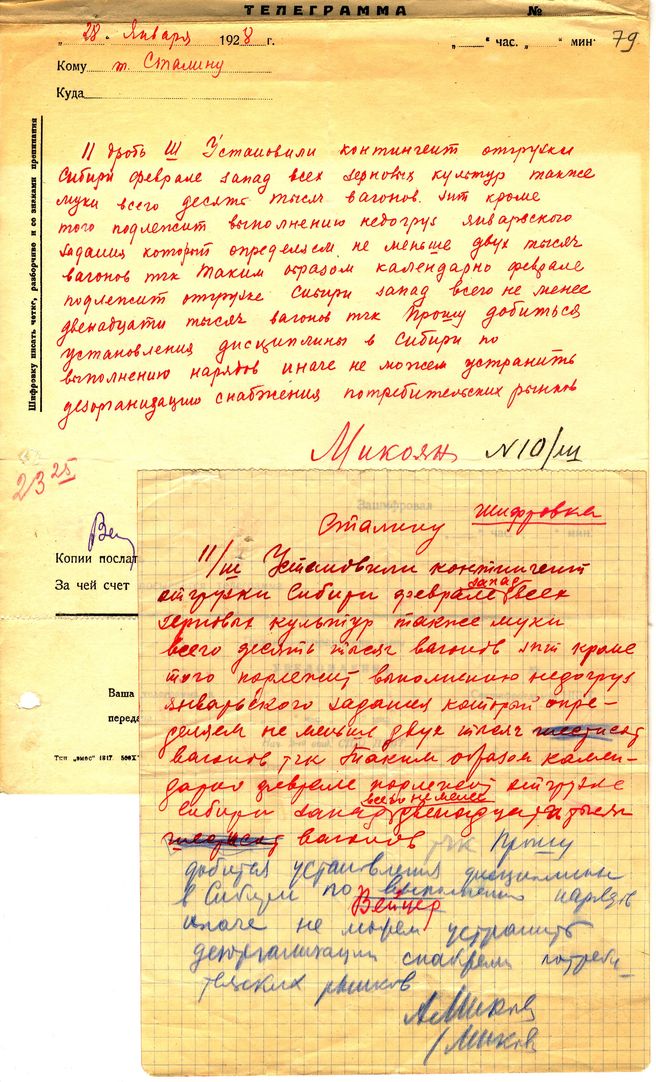 ТЕЛЕГРАММА №
„ 28 " Января 1928 г. „ " час. „ " мин. 79
Кому т. Сталину
Куда
Шифровку писать четко, разборчиво и со знаками препинания
11 дробь Ш Установили контингент отгрузки
Сибири феврале запад всех зерновых культур также
муки всего десять тысяч вагонов зпт кроме
того подлежит выполнению недогруз январского
задания который определяем не меньше двух тысяч
вагонов тчк Таким образом календарно феврале
подлежит отгрузке Сибири запад всего не менее
двенадцати тысяч вагонов тчк Прошу добиться
установления дисциплины в Сибири по
выполнению нарядов иначе не можем устранить
дезорганизацию снабжения потребительских рынков
Микоян N10/ш
23 25
Копии послат
За чей счет
Ваша
переда
Тип „эмос" 1817. 500X
Зашифровал
час. мин.
Сталину Шифровка
11/ш Установили контингент
отгрузки Сибири феврале запад всех
зерновых культур также муки
всего десять тысяч вагонов зпт кроме
того подлежит выполнению недогруз
январьского задания который опре-
деляем не меньше двух тысяч
вагонов тчк Таким образом кален-
дарно феврале подлежит отгрузке
Сибири запад всего не менее двенадцати тысяч
вагонов тчк Прошу
добится установления дисциплины
в Сибири по выполнению нарядов
Вейцер
иначе не можем устранить
дезорганизации снабжения потреби-
тельских рынков
А Микоян
/Микоян